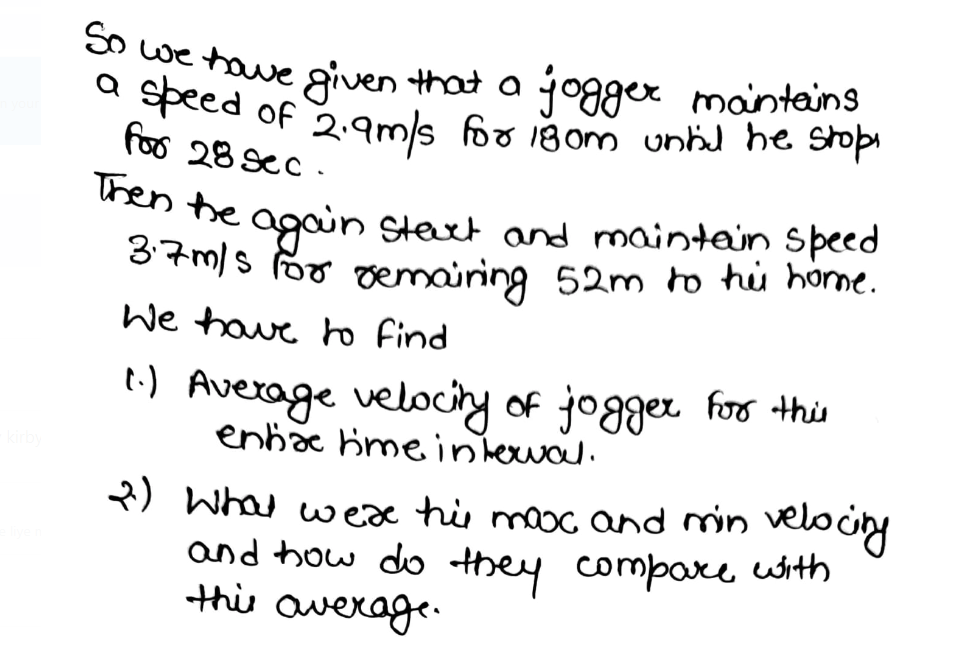 So we have given that a jogger maintains
a speed of 2.9m/s for 180m until he stops
for 28 sec.
Then he again start and maintain speed
3.7m/s for remaining 52m to his home.
We have to find
1.) Average velocity of jogger for this
entire time interval.
2) What were his max and min velocity
and how do they compare with
this average.